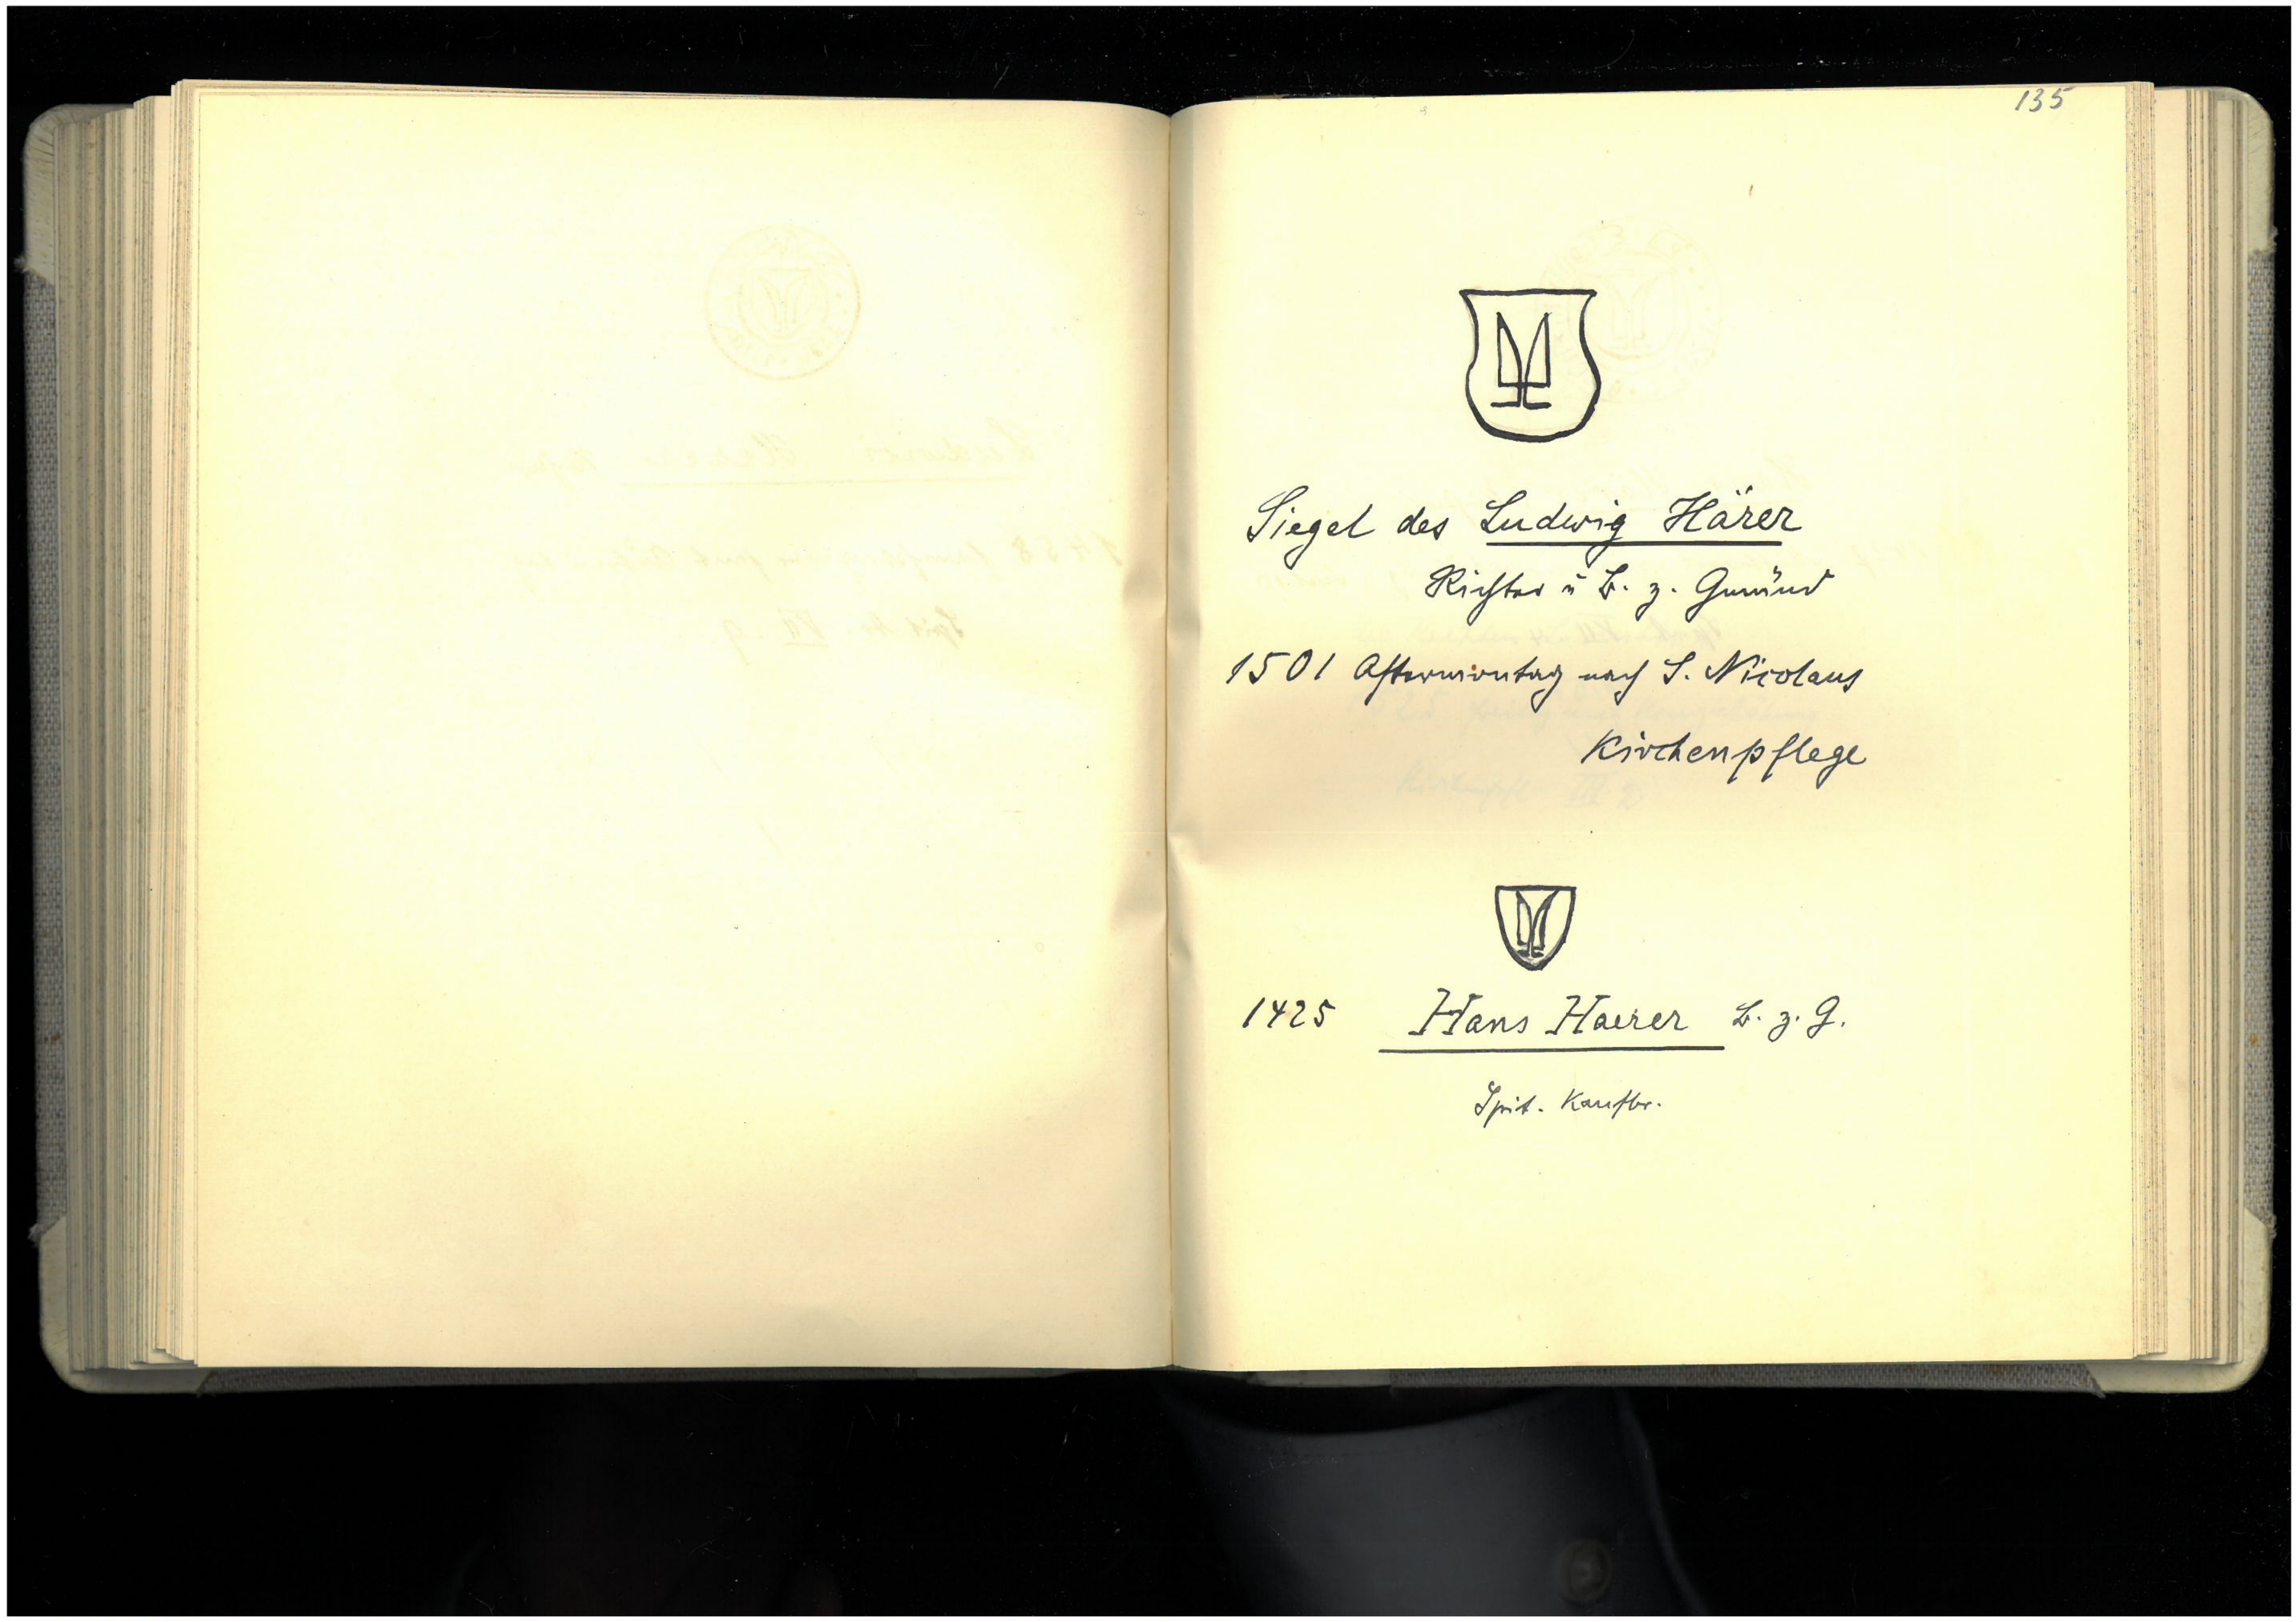 135
Siegel des Ludwig Härer
Richter u B. z. Gmünd
1501 Aftermontag nach S. Nicolaus
Kirchenpflege
1425 Hans Haerer B. z. G.
Spit. Kaufbr.